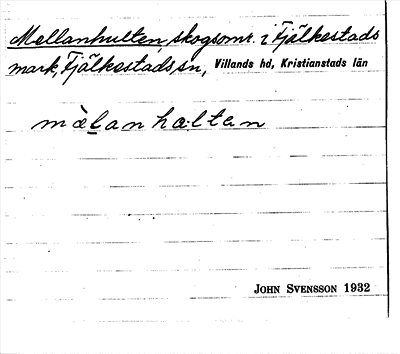 Mellanhulten, skogsomr. i Fjälkestads
mark, Fjälkestads sn, Villands hd, Kristianstads län
mèlanhaltan
JOHN SVENSSON 1932